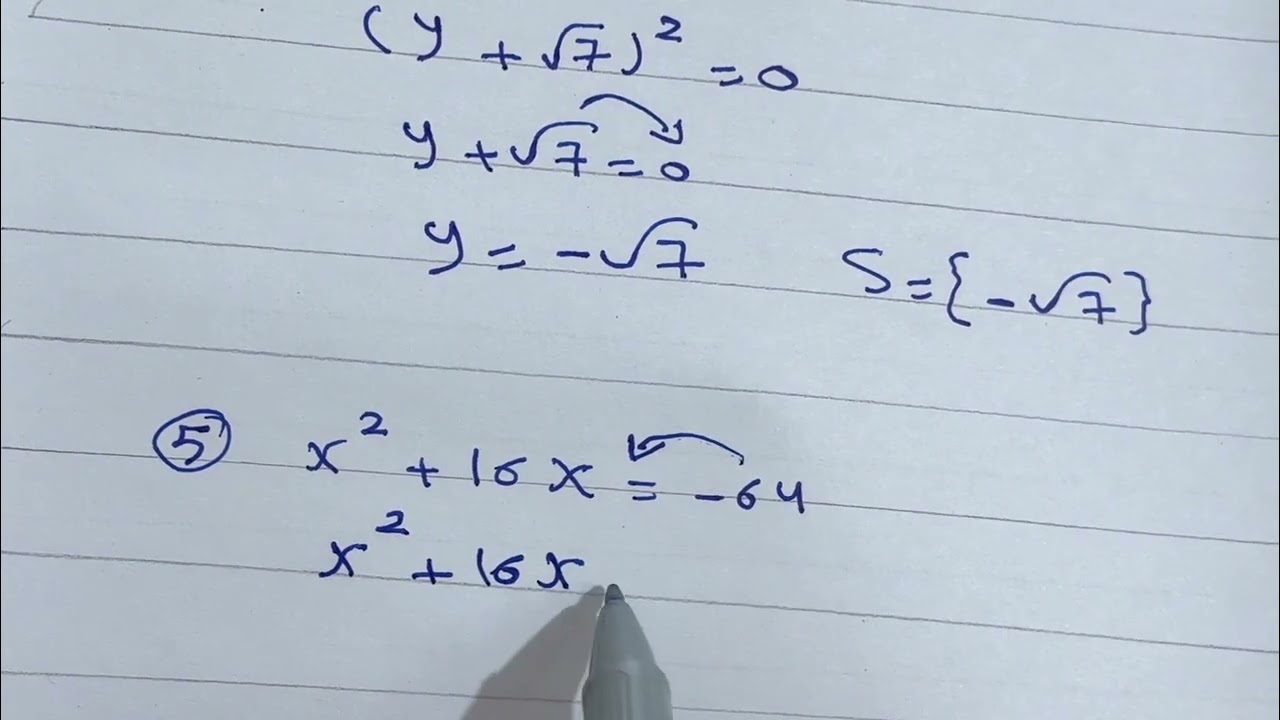 (y + √7)² = 0
y + √7 = 0
y = -√7 S = {-√7}
⑤ x² + 16x = -64
x² + 16x